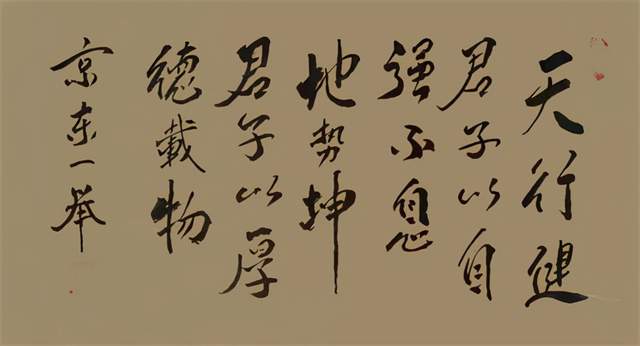 天行健
君子以自
强不息
地势坤
君子以厚
德載物
京东一举